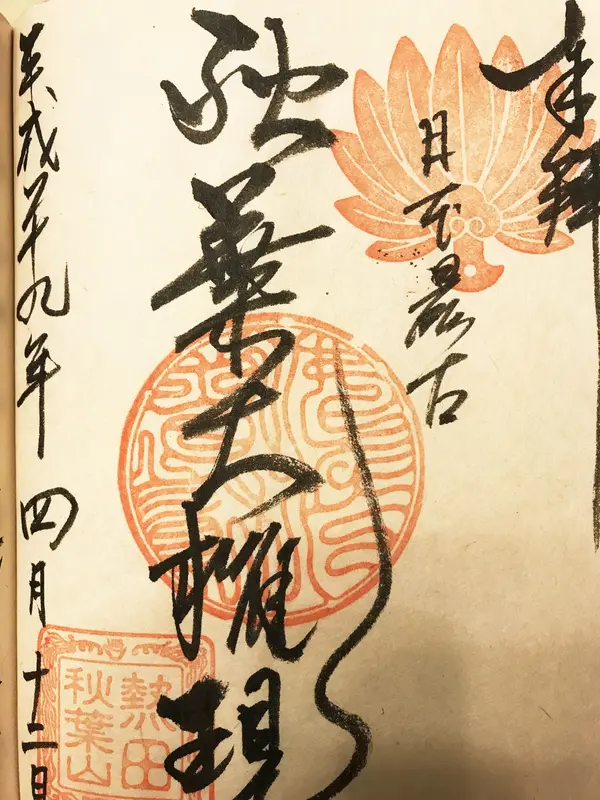 奉拝
日本最古
秋葉大権現
平成廿九年四月十二日
熱田
秋葉山